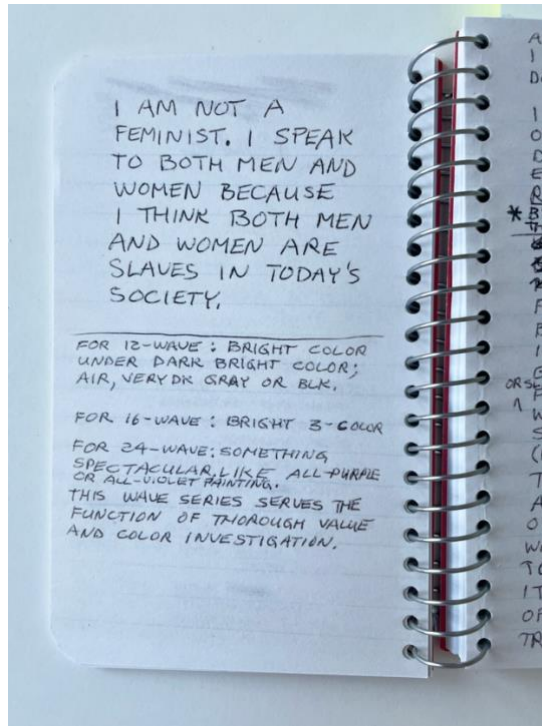 I AM NOT A
FEMINIST. I SPEAK
TO BOTH MEN AND
WOMEN BECAUSE
I THINK BOTH MEN
AND WOMEN ARE
SLAVES IN TODAY'S
SOCIETY.
FOR 12-WAVE: BRIGHT COLOR
UNDER DARK BRIGHT COLOR;
AIR, VERY DK GRAY OR BLK.
FOR 16-WAVE: BRIGHT 3-COLOR
FOR 24-WAVE: SOMETHING
SPECTACULAR LIKE ALL-PURPLE
OR ALL-VIOLET PAINTING.
THIS WAVE SERIES SERVES THE
FUNCTION OF THOROUGH VALUE
AND COLOR INVESTIGATION.